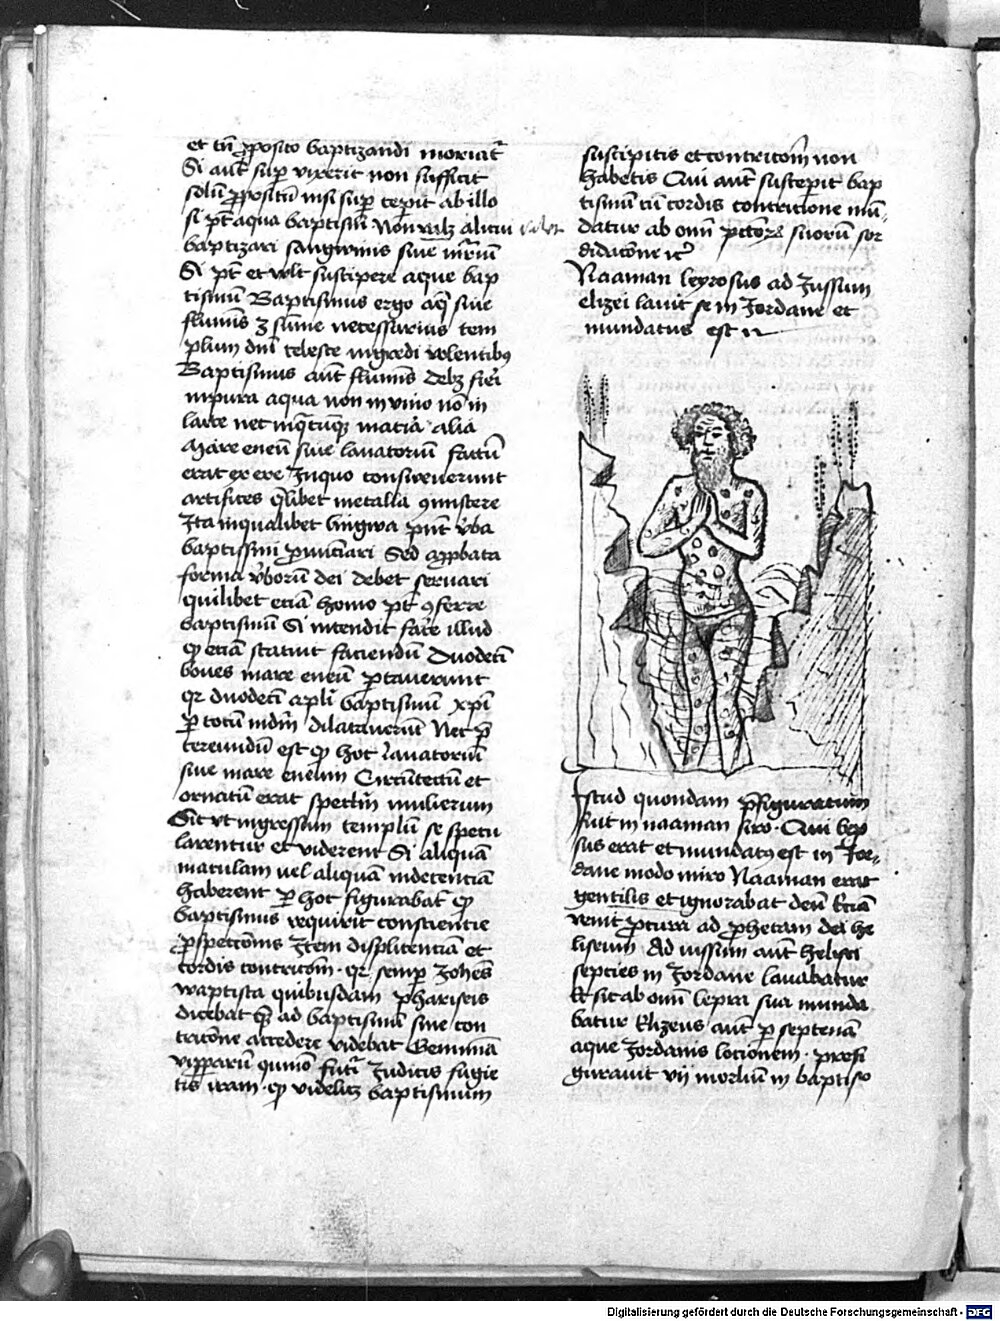 et tn̄ ꝓposito baptizandi moriat᷑
Si aut̄ sup̱ vixerit non sufficit
solū ꝓpositū nisi sup̱ cepit ab illo
si pt̄ aqua baptismi Non valꝫ alicui valet
baptizari sangwinis siue
Si pt̄ et vult suscipere aque bap
tismū Baptismus ergo aq̄ siue
flumis ꝫ sūme necessarius tem
plum dn̄i celeste ingredi volentibꝯ
Baptismus aut̄ flumīs debꝫ fieri
in pura aqua non in vino nō in
lacte nec in q̄cūqꝫ mat̄ia alia
Mare eneū siue lauatoriū factū
erat ex ere In quo consweuerunt
artifices qͥlibet metalla ꝯmistere
Ita in qualibet lingwa pn̄t v̄ba
baptismi ꝓnūciari Sed apꝓbata
forma v̄borū dei debet seruari
quilibet eciā homo pt̄ ꝯferre
baptismū Si intendit fac̄e illud
qͦ eciā statuit faciendū Duodecī
boues mare eneū portauerunt
qꝛ duodecī apl̄i baptismū xp̄i
ꝑ totū mdm̄ dilatauerūt Nec p̄
tereundū est qͦ hoc lauatoriū
siue mare eneum Circūtectū et
ornatū erat specl̄is mulierum
Sic vt ingressuri templū se specu
larentur et viderent Si aliquā
maculam vel aliquam indecenciā
haberent ꝑ hoc figurabat᷑ qͦ
baptismus requirit consciencie
ꝓspeccōnis Item displicenciā et
cordis contricōm · qꝛ semp̱ Joh̄es
waptista quibusdam phariseis
dicebat qͥ ad baptismū sine con
tricōne accedere videbat Gemina
vipparū quis futͥ Judicis fugie
tis iram · qͦ videlicꝫ baptismum
suscipitis et contricōm non
habetis Qui aut̄ susceperit bap
tismū cū cordis contricione mū-
datur ab om̄i pctōꝝ suorū sor
didacōne ꝛcͣ
Naaman leprosus ad Jussum
elizei lauit se in Jordane et
mundatus est
Istud quondam p̄figuratum
fuit in naaman siro · Qui lep
sus erat et mundatꝯ est in Jor-
dane modo miro Naaman erat
gentilis et ignorabat deū Eciā
venit ꝓ cura ad ꝓphetam dei he
liseum · Ad iussum aut̄ helysei
septies in Jordane lauabatur
Et sic ab om̄i lepra sua munda
batur Elizeus aut̄ ꝑ septenā
aque Jordanis locionem · prefi
gurauit vij in baptiso